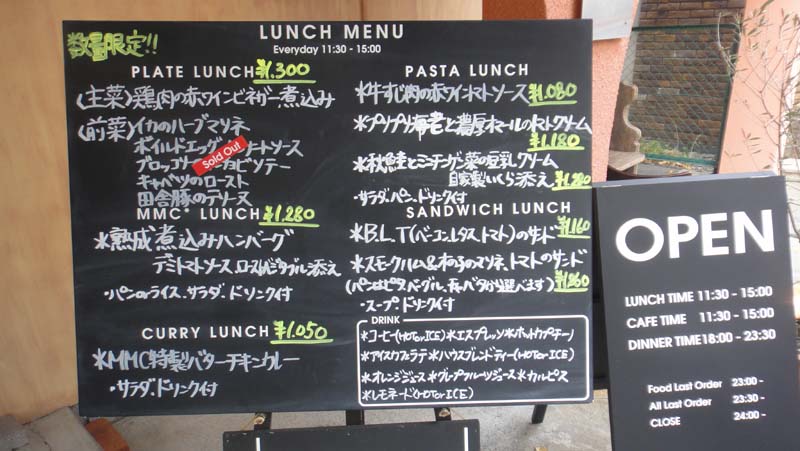 数量限定!!
LUNCH MENU
Everyday 11:30 - 15:00
PLATE LUNCH ¥1.300
(主菜)鶏肉の赤ワインビネガー煮込み
(前菜)イカのハーブマリネ
ボイルドエッグ ートソース
Sold Out
ブロッコリー ソテー
キャベツのロースト
田舎豚のテリーヌ
MMC* LUNCH ¥1.280
*熟成煮込みハンバーグ
デミトマトソース、ローストベジタブル添え
・パンorライス、サラダ、ドリンク付
CURRY LUNCH ¥1.050
*MMC特製バターチキンカレー
・サラダ、ドリンク付
PASTA LUNCH
*牛すじ肉の赤ワイントマトソース ¥1.080
*プリプリ海老と濃厚オマールのトマトクリーム
¥1.180
*秋鮭と 菜の豆乳クリーム
自家製いくら添え ¥1.280
・サラダ、パン、ドリンク付
SANDWICH LUNCH
*B.L.T(ベーコン、レタス、トマト)のサンド ¥1.160
*スモークハム& のマリネ、トマトのサンド
(パンはピタ、ベーグル、 から選べます) ¥1.260
・スープ、ドリンク付
DRINK
*コーヒー(HOTorICE)*エスプレッソ*ホットカプチーノ
*アイスカフェラテ *ハウスブレンドティー(HOTorICE)
*オレンジジュース *グレープフルーツジュース *カルピス
*レモネード(HOTorICE)
OPEN
LUNCH TIME 11:30 - 15:00
CAFE TIME 11:30 - 15:00
DINNER TIME 18:00 - 23:30
Food Last Order 23:00 -
All Last Order 23:30 -
CLOSE 24:00 -